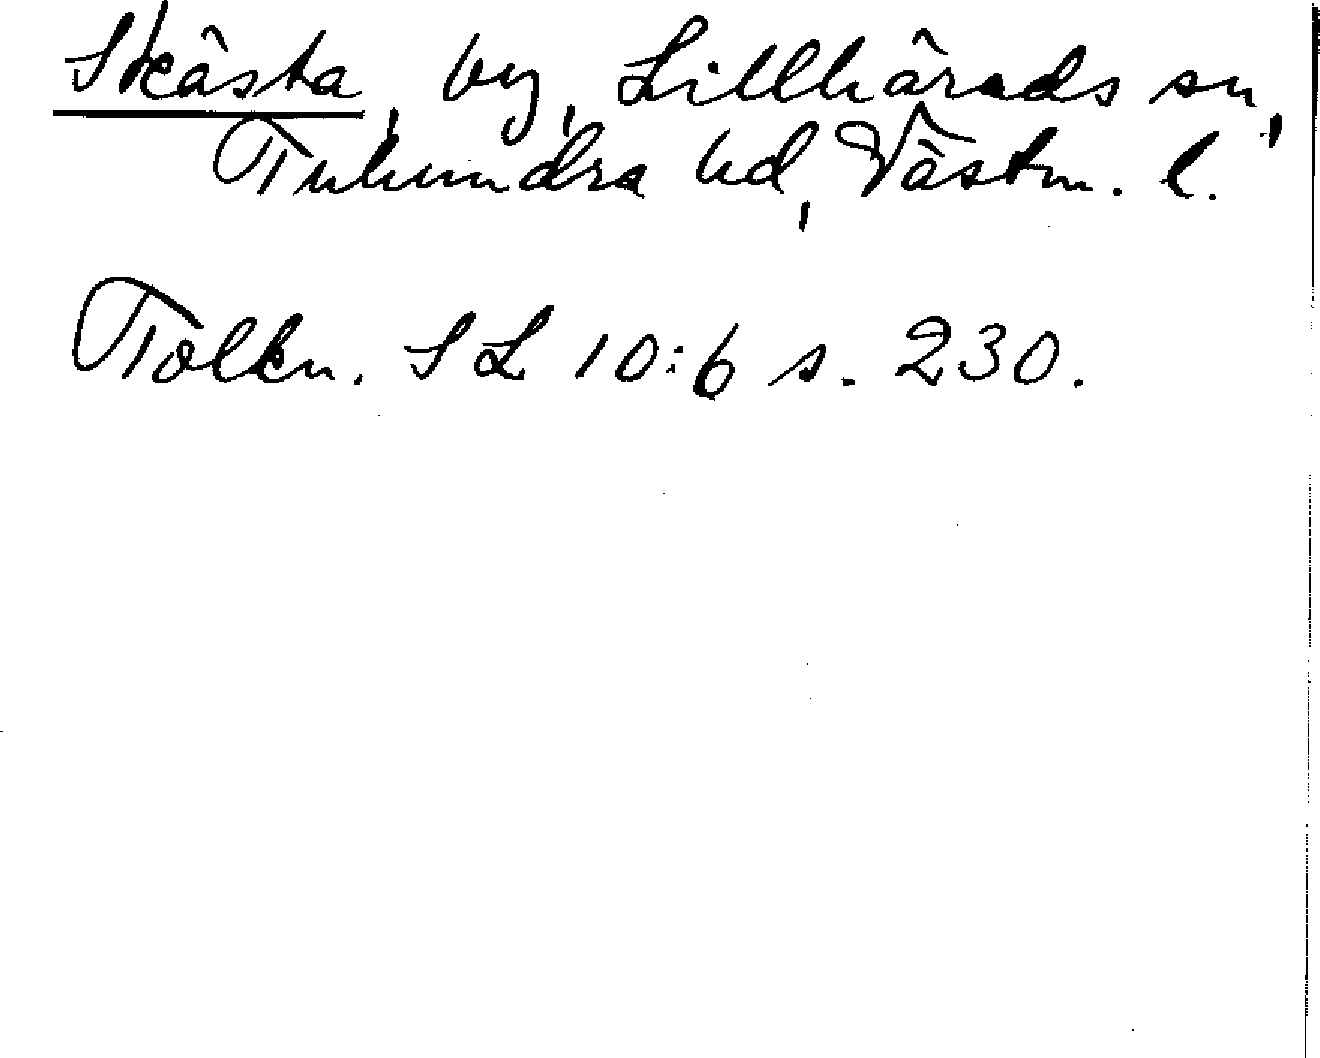 Skästa, by, Lillhärads sn,
Tuhundra hd, Västm. l.
Tolkn. SL 10:6 s. 230.